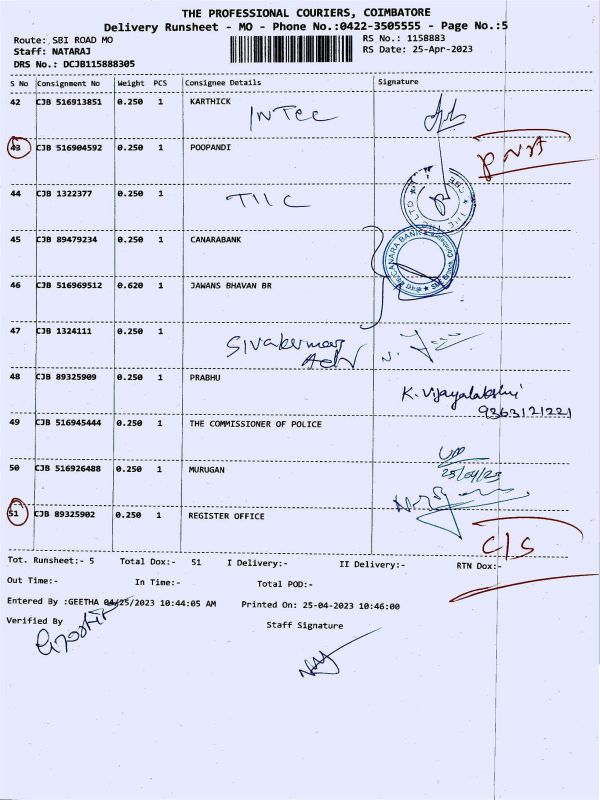 THE PROFESSIONAL COURIERS, COIMBATORE
Delivery Runsheet - MO - Phone No.:0422-3505555 - Page No.:5
Route: SBI ROAD MO
RS No.: 1158883
Staff: NATARAJ
RS Date: 25-Apr-2023
DRS No.: DCJB115888305
S No Consignment No Weight PCS Consignee Details Signature
42 CJB 516913851 0.250 1 KARTHICK
INTEC
43 CJB 516904592 0.250 1 POOPANDI
PNA
44 CJB 1322377 0.250 1
TIIC
45 CJB 89479234 0.250 1 CANARABANK
CANARA BANK
46 CJB 516969512 0.620 1 JAWANS BHAVAN BR
47 CJB 1324111 0.250 1
Sivakumar
Adv
48 CJB 89325909 0.250 1 PRABHU
K. Vijayalakshmi
9363121221
49 CJB 516945444 0.250 1 THE COMMISSIONER OF POLICE
50 CJB 516926488 0.250 1 MURUGAN
25/04/23
51 CJB 89325902 0.250 1 REGISTER OFFICE
C/S
Tot. Runsheet:- 5 Total Dox:- 51 I Delivery:- II Delivery:- RTN Dox:-
Out Time:- In Time:- Total POD:-
Entered By :GEETHA 04/25/2023 10:44:05 AM Printed On: 25-04-2023 10:46:00
Verified By Staff Signature